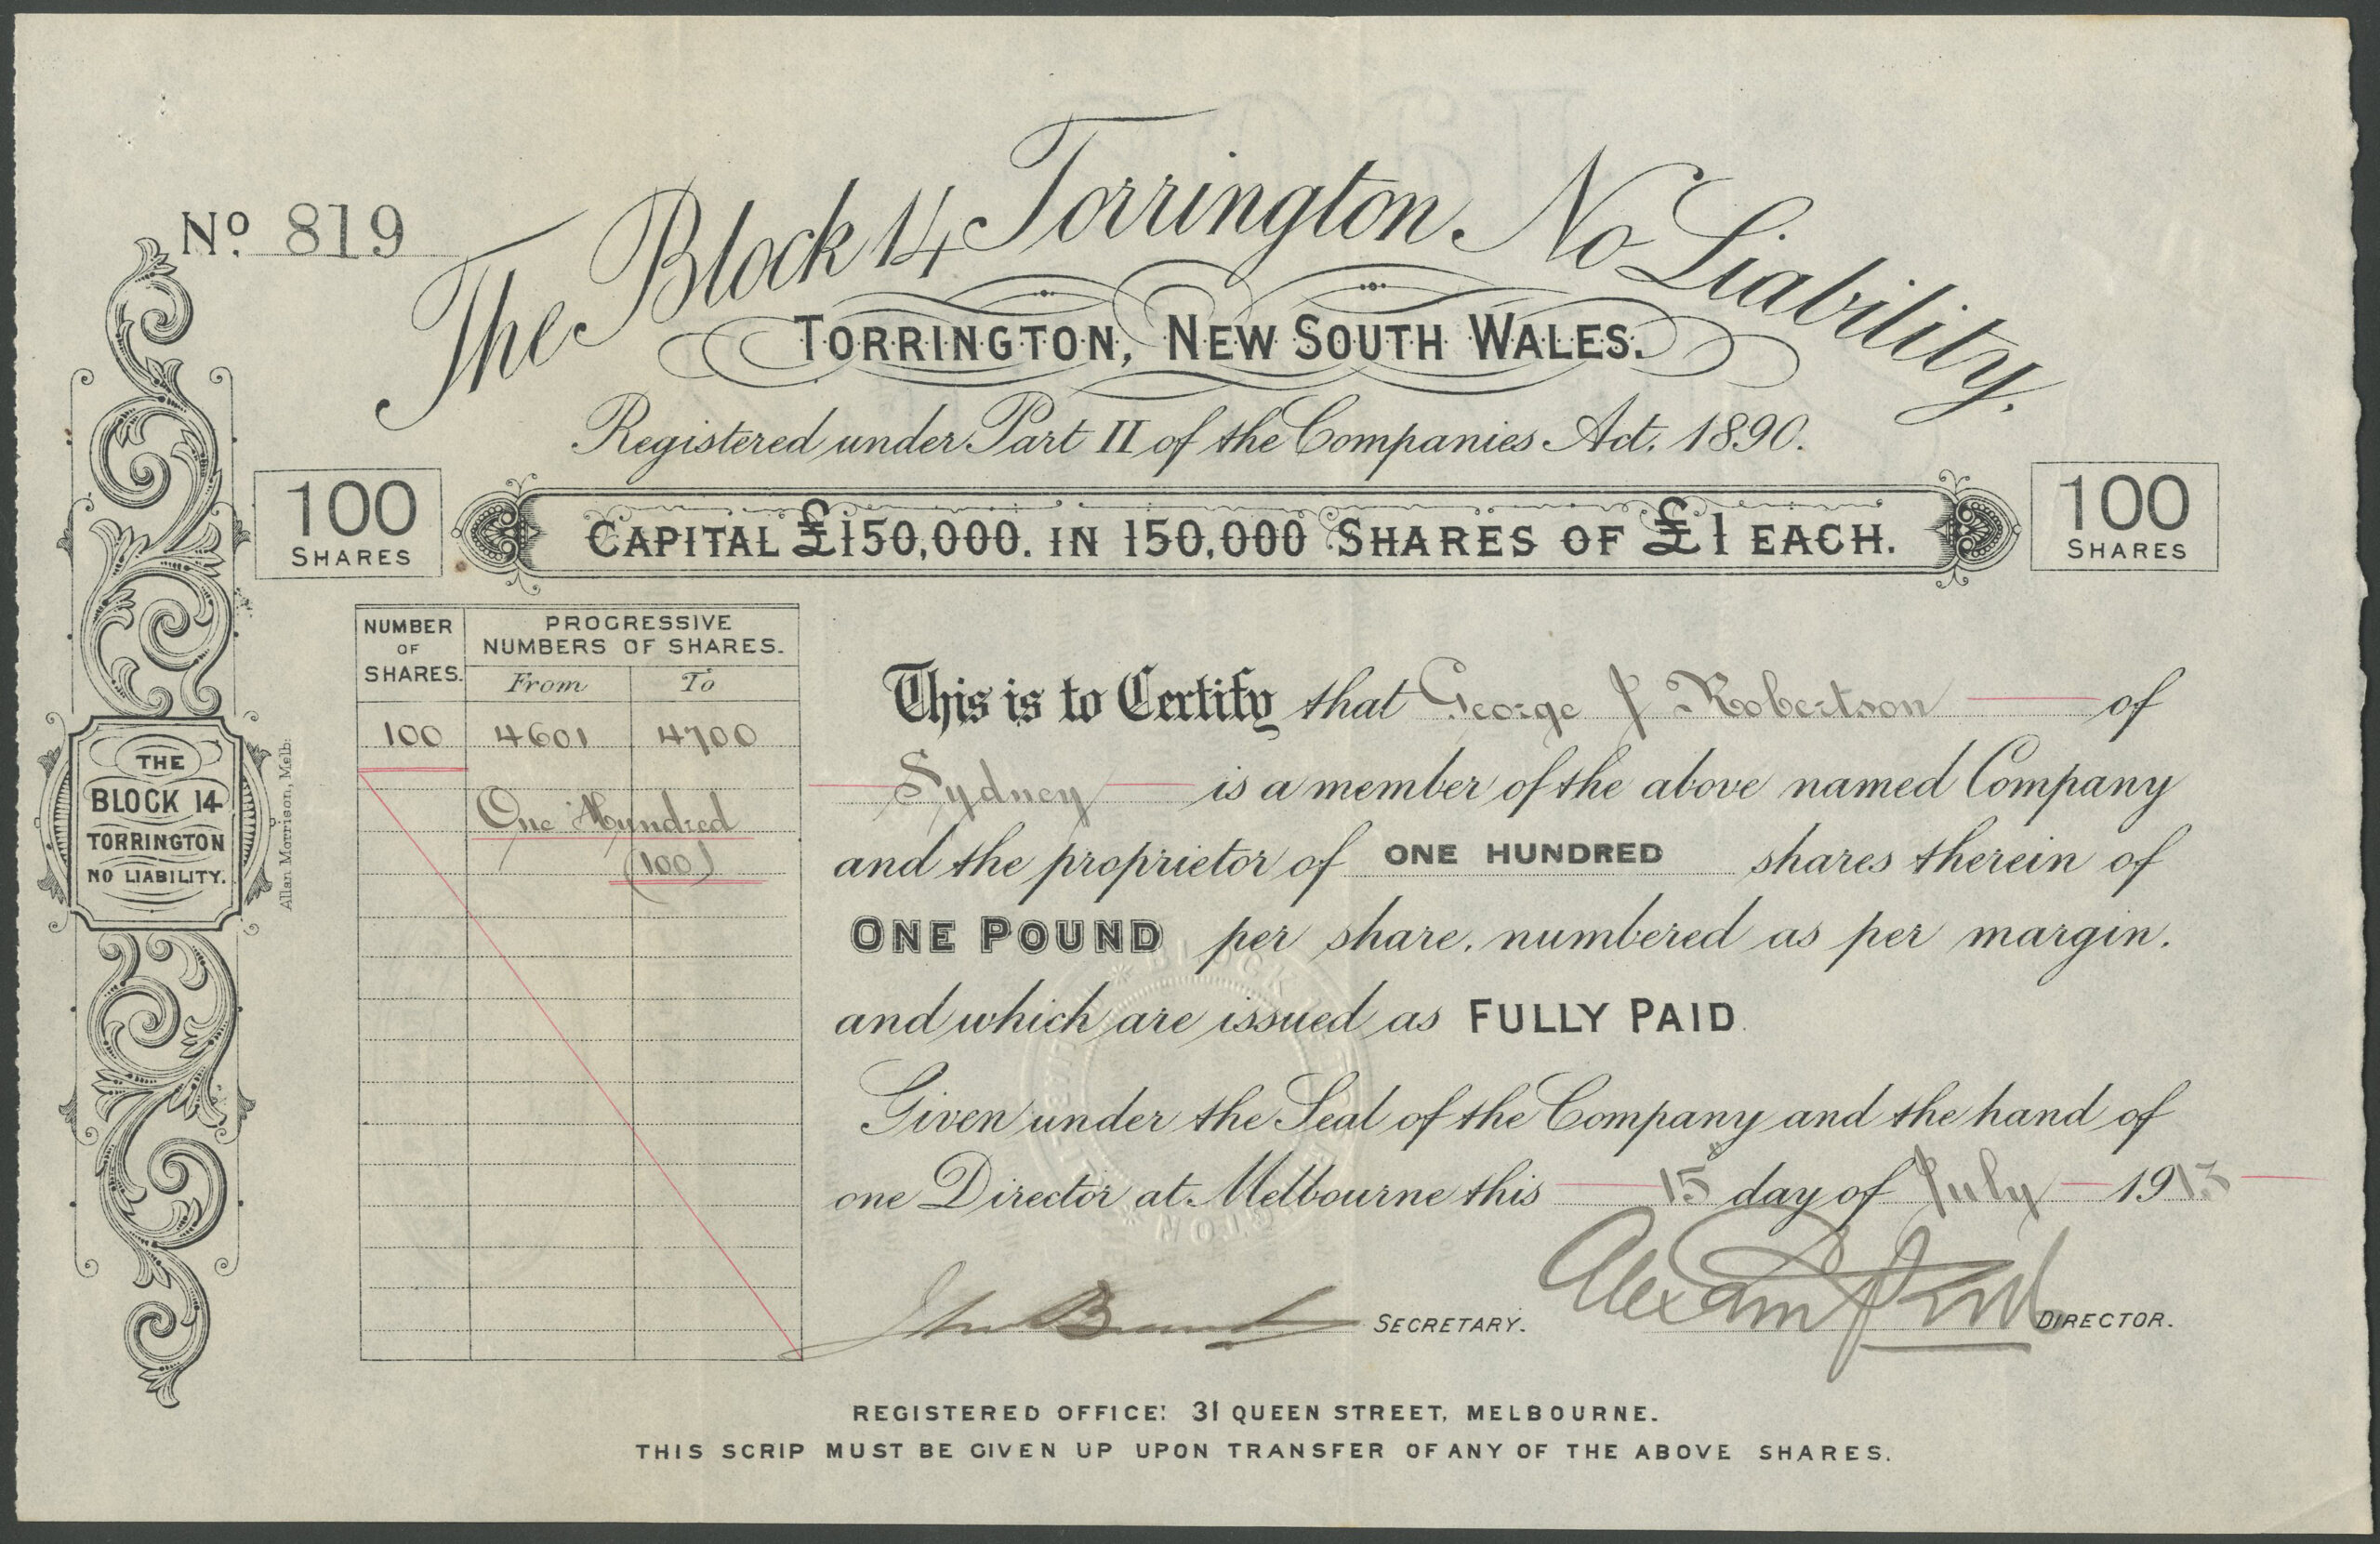 No. 819
The Block 14 Torrington No Liability.
TORRINGTON, NEW SOUTH WALES.
Registered under Part II of the Companies Act. 1890.
100
SHARES
CAPITAL £150,000. IN 150,000 SHARES OF £1 EACH.
100
SHARES
NUMBER
OF
SHARES.
PROGRESSIVE
NUMBERS OF SHARES.
From To
100 4601 4700
One Hundred
(100)
THE
BLOCK 14
TORRINGTON
NO LIABILITY.
Allan Morrison, Melb:
This is to Certify that George J Robertson of
Sydney is a member of the above named Company
and the proprietor of ONE HUNDRED shares therein of
ONE POUND per share, numbered as per margin.
and which are issued as FULLY PAID.
Given under the Seal of the Company and the hand of
one Director at Melbourne this 15 day of July 1913
John SECRETARY.
DIRECTOR.
REGISTERED OFFICE: 31 QUEEN STREET, MELBOURNE.
THIS SCRIP MUST BE GIVEN UP UPON TRANSFER OF ANY OF THE ABOVE SHARES.